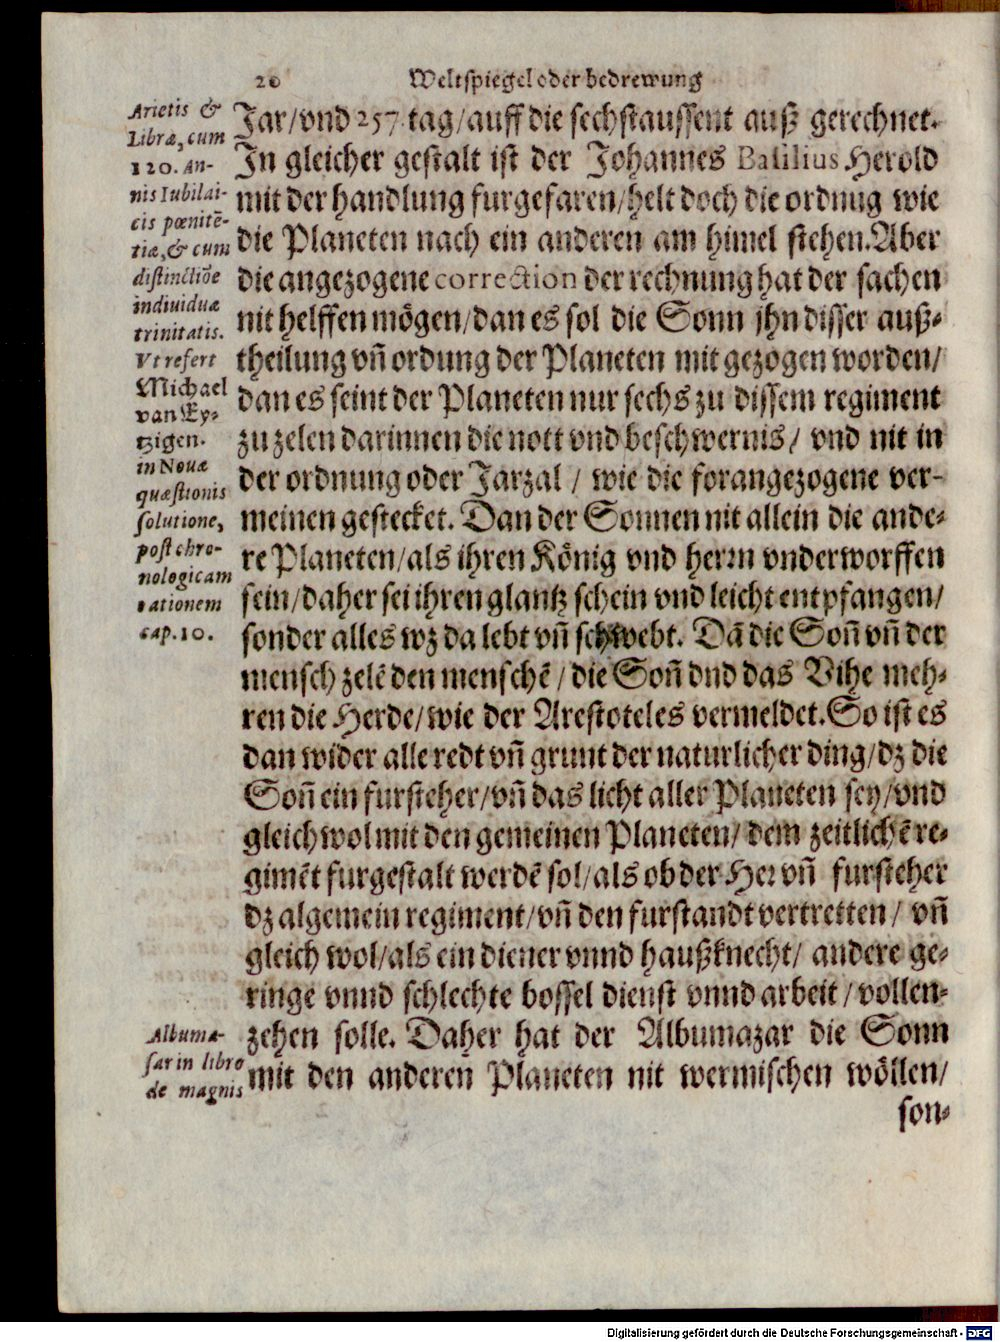 20 Weltspiegel oder bedrewung
Arietis &
Libræ, cum
120. An-
nis Iubilai-
cis pœnitẽ-
tiæ, & cum
distinctiõe
indiuiduæ
trinitatis.
Vt refert
Michael
van Ey-
tzigen.
in Nouæ
quæstionis
solutione,
post chro-
nologicam
rationem
cap. 10.
Jar/vnd 257 tag/auff die sechstaussent auß gerechnet.
In gleicher gestalt ist der Johannes Basilius Herold
mit der handlung furgefaren/helt doch die ordnug wie
die Planeten nach ein anderen am himel stehen.Aber
die angezogene correction der rechnung hat der sachen
nit helffen mögen/dan es sol die Sonn jhn disser auß-
theilung vñ ordung der Planeten mit gezogen worden/
dan es seint der Planeten nur sechs zu dissem regiment
zu zelen darinnen die nott vnd beschwernis/ vnd nit in
der ordnung oder Jarzal / wie die forangezogene ver-
meinen gestecket. Dan der Sonnen nit allein die ande-
re Planeten/als ihren König vnd herrn vnderworffen
sein/daher sei ihren glantz schein vnd leicht entpfangen/
sonder alles wz da lebt vñ schwebt. Dã die Soñ vñ der
mensch zelẽ den menschẽ / die Soñ dnd das Vihe meh-
ren die Herde/wie der Arestoteles vermeldet.So ist es
dan wider alle redt vñ grunt der naturlicher ding/dz die
Soñ ein fursteher/vñ das licht aller Planeten sey/vnd
gleich wol mit den gemeinen Planeten/ dem zeitlichẽ re-
gimẽt furgestalt werdẽ sol/als ob der Her vñ fursteher
dz algemein regiment/vñ den furstandt vertretten/ vñ
gleich wol/als ein diener vnnd haußknecht/ andere ge-
ringe vnnd schlechte bossel dienst vnnd arbeit/vollen-
zehen solle. Daher hat der Albumazar die Sonn
mit den anderen Planeten nit wermischen wöllen/
son-
Albuma-
sar in libro
de magnis
Digitalisierung gefördert durch die Deutsche Forschungsgemeinschaft - DFG